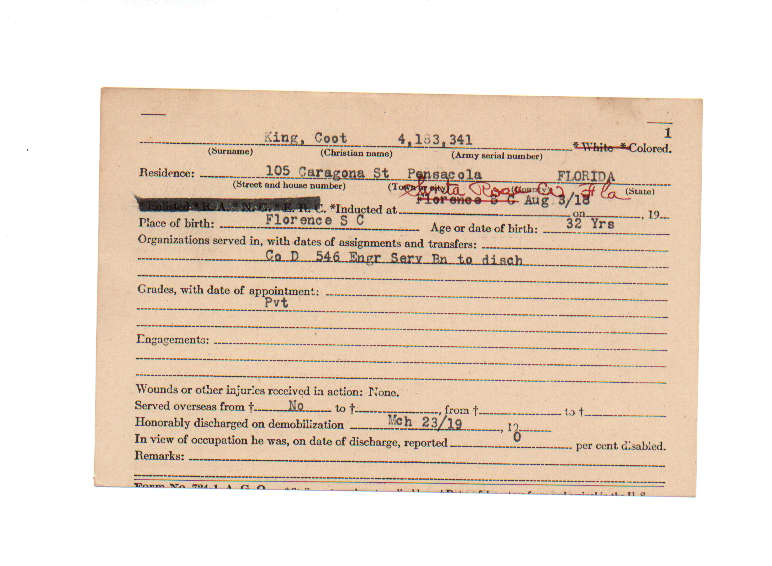 1
King, Coot 4,183,341 *White *Colored.
(Surname) (Christian name) (Army serial number)
Residence: 105 Caragona St Pensacola FLORIDA
(Street and house number) (Town or city) (County) (State)
Santa Rosa Co, Fla
*Inducted at Florence S C Aug 3/18 on , 19
Place of birth: Florence S C Age or date of birth: 32 Yrs
Organizations served in, with dates of assignments and transfers:
Co D 546 Engr Serv Bn to disch
Grades, with date of appointment:
Pvt
Engagements:
Wounds or other injuries received in action: None.
Served overseas from † No to †, from † to †
Honorably discharged on demobilization Mch 23/19, 19
In view of occupation he was, on date of discharge, reported 0 per cent disabled.
Remarks:
Form No. 724-1, A. G. O.